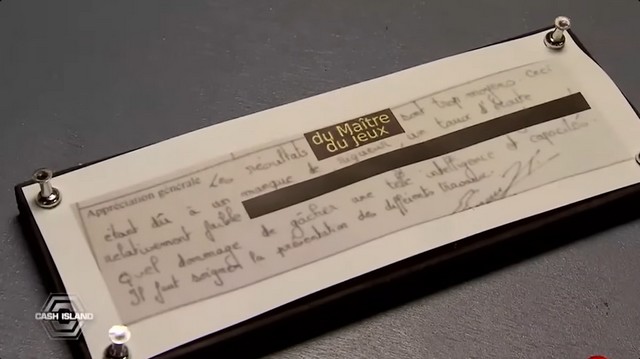 Appréciation générale Les résultats du Maître du jeux sont trop moyens. Ceci
étant dû à un manque de rigueur, un taux d'écoute
relativement faible
Quel dommage de gâcher une telle intelligence et capacités.
Il faut soigner la présentation des différents travaux.
CASH ISLAND